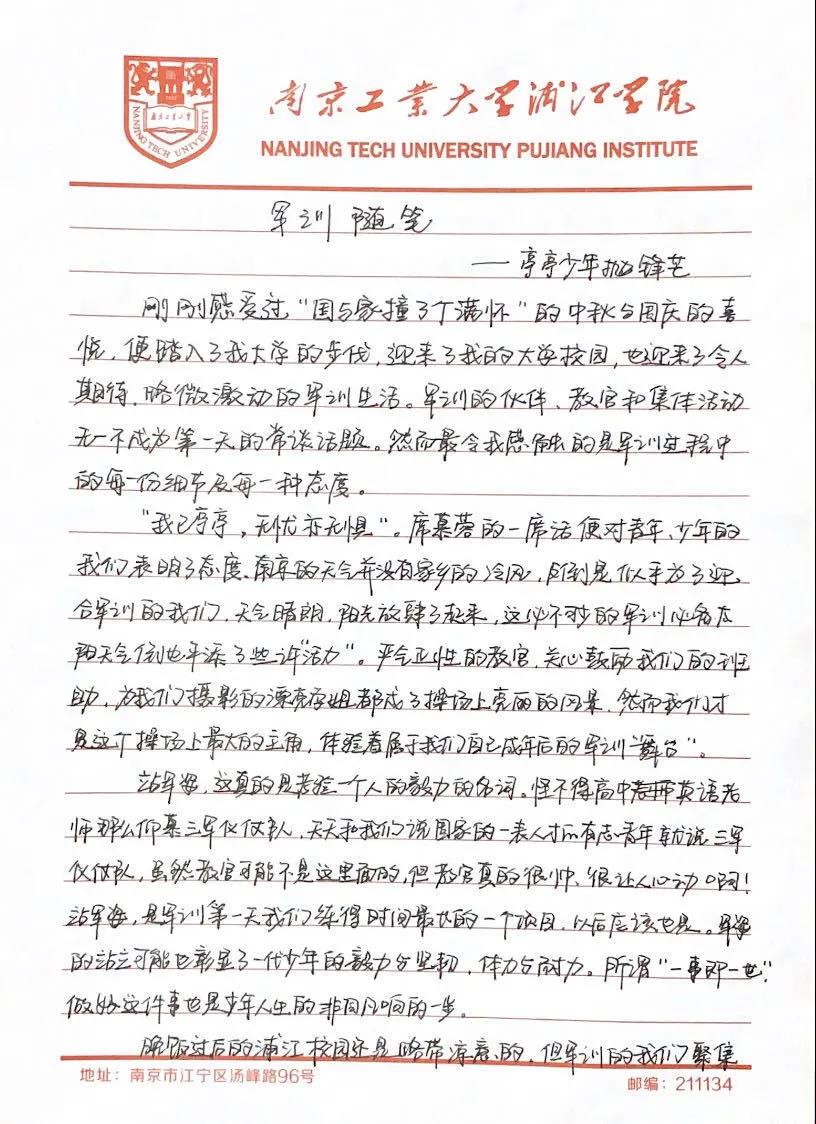 南京工业大学
NANJING TECH UNIVERSITY
南京工业大学浦江学院
NANJING TECH UNIVERSITY PUJIANG INSTITUTE
军训随笔
——亭亭少年 锋芒
刚刚感受过“国与家撞了个满怀”的中秋与国庆的喜
悦，便踏入了我大学的步伐，迎来了我的大学校园，也迎来了令人
期待、略微激动的军训生活。军训的伙伴、教官和集体活动
无一不成为第一天的常谈话题。然而最令我感触的是军训过程中
的每一份细节及每一种态度。
“我已亭亭，无忧亦无惧”。席慕蓉的一席话便对青年、少年的
我们表明了态度。南京的天气并没有家乡的冷风，反倒是似乎为了迎
合军训的我们，天气晴朗，阳光放肆了起来，这必不可少的军训必备太
阳天气倒也平添了些许“活力”。严令正性的教官，关心鼓励我们的班
助，为我们摄影的漂亮学姐都成了操场上亮丽的风景，然而我们才
是这个操场上最大的主角，体验着属于我们自己成年后的军训“舞台”。
站军姿，这真的是考验一个人的毅力的名词。怪不得高中英语老
师那么仰慕三军仪仗队，天天和我们说国家的一表人才有志青年就说三军
仪仗队，虽然教官可能不是这里面的，但教官真的很帅、很让人心动啊！
站军姿，是军训第一天我们练得时间最长的一个项目，以后应该也是。军姿
的站立可能也彰显了一代少年的毅力与坚韧，体力与耐力。所谓“一事即一世”，
做好这件事也是少年人生的非同凡响的一步。
晚饭过后的浦江校园还是略带凉意的，但军训的我们聚集
地址：南京市江宁区汤峰路96号
邮编：211134